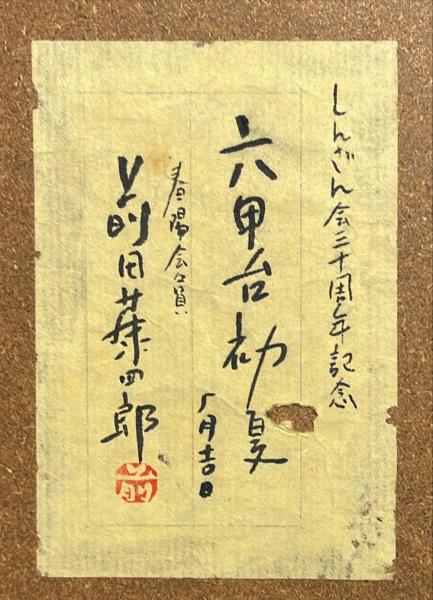 しんざん会三十周年記念
六甲台初夏
5月吉日
春陽会会員
前田藤四郎
前